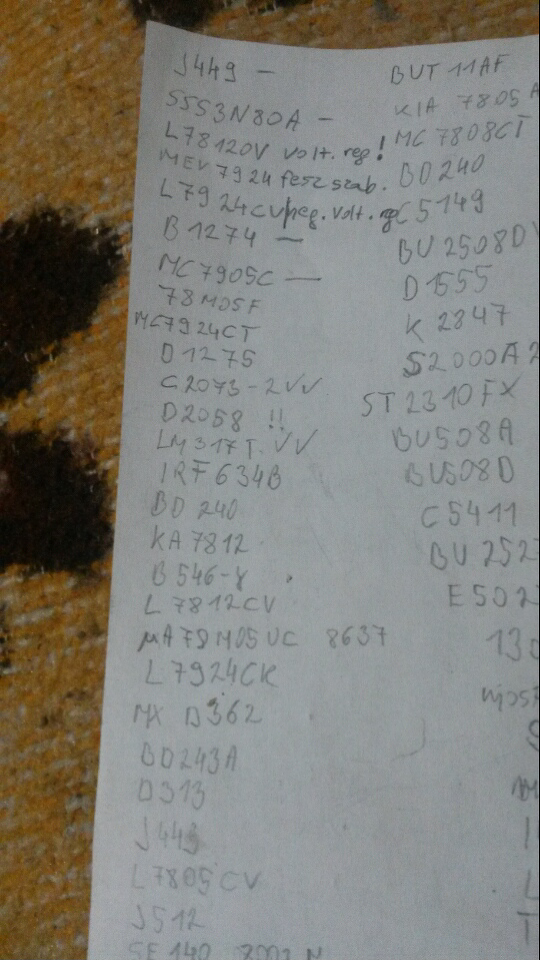 J449 —
SSS3N80A —
L78120V volt. reg!
MEV 7924 fesz szab.
L7924CV neg. volt. reg
B1274 —
MC7905C —
78M05F
MC7924CT
D1275
C2073-2VV
D2058 !!
LM317T VV
IRF634B
BD 240
KA7812
B546-Y
L7812CV
µA78M05UC 8637
L7924CK
MX D362
BD243A
D313
J443
L7805CV
J512
BUT11AF
KIA 7805A
MC7808CT
BD240
C5149
BU2508D
D1555
K2847
S2000A2
ST2310FX
BU508A
BU508D
C5411
BU252
E502
130